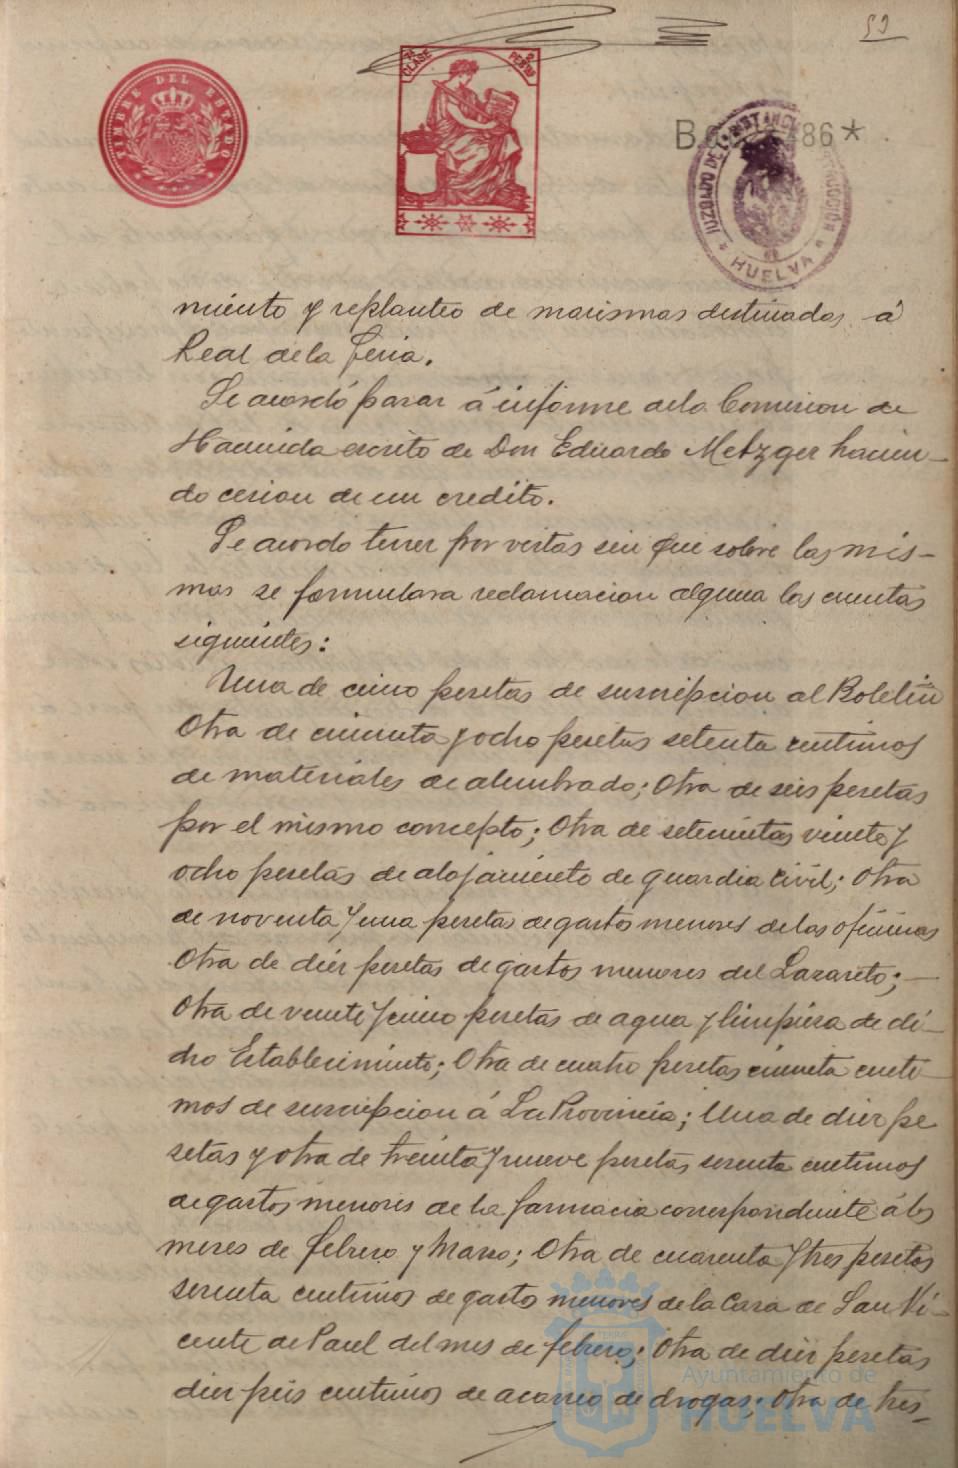 59
TIMBRE DEL ESTADO
7ª CLASE 2 PESETAS
B 86*
JUZGADO DE 1ª INSTANCIA
HUELVA
miento y replanteo de marismas destinadas á
Real de la feria.
Se acordó pasar á informe de la Comision de
Hacienda escrito de Don Eduardo Metzger hacien-
do cesion de un credito.
Se acordo tener por vistas sin que sobre las mis-
mas se formulara reclamacion alguna las cuentas
siguientes:
Una de cinco pesetas de suscripcion al Boletin
Otra de cincuenta y ocho pesetas setenta centimos
de materiales de alumbrado; Otra de seis pesetas
por el mismo concepto; Otra de setecientas veinte y
ocho pesetas de alojamiento de guardia civil; Otra
de noventa y una pesetas de gastos menores de las oficinas
Otra de diez pesetas de gastos menores del Lazareto;—
Otra de veinte y cinco pesetas de agua y limpieza de di-
cho Establecimiento; Otra de cuatro pesetas cincuenta centi-
mos de suscripcion á La Provincia; Una de diez pe
setas y otra de treinta y nueve pesetas sesenta centimos
de gastos menores de la farmacia correspondiente á los
meses de febrero y Marzo; Otra de cuarenta y tres pesetas
sesenta centimos de gastos menores de la Casa de San Vi-
cente de Paul del mes de febrero; Otra de diez pesetas
diez seis centimos de acarreo de drogas; Otra de tres=
Ayuntamiento de
HUELVA